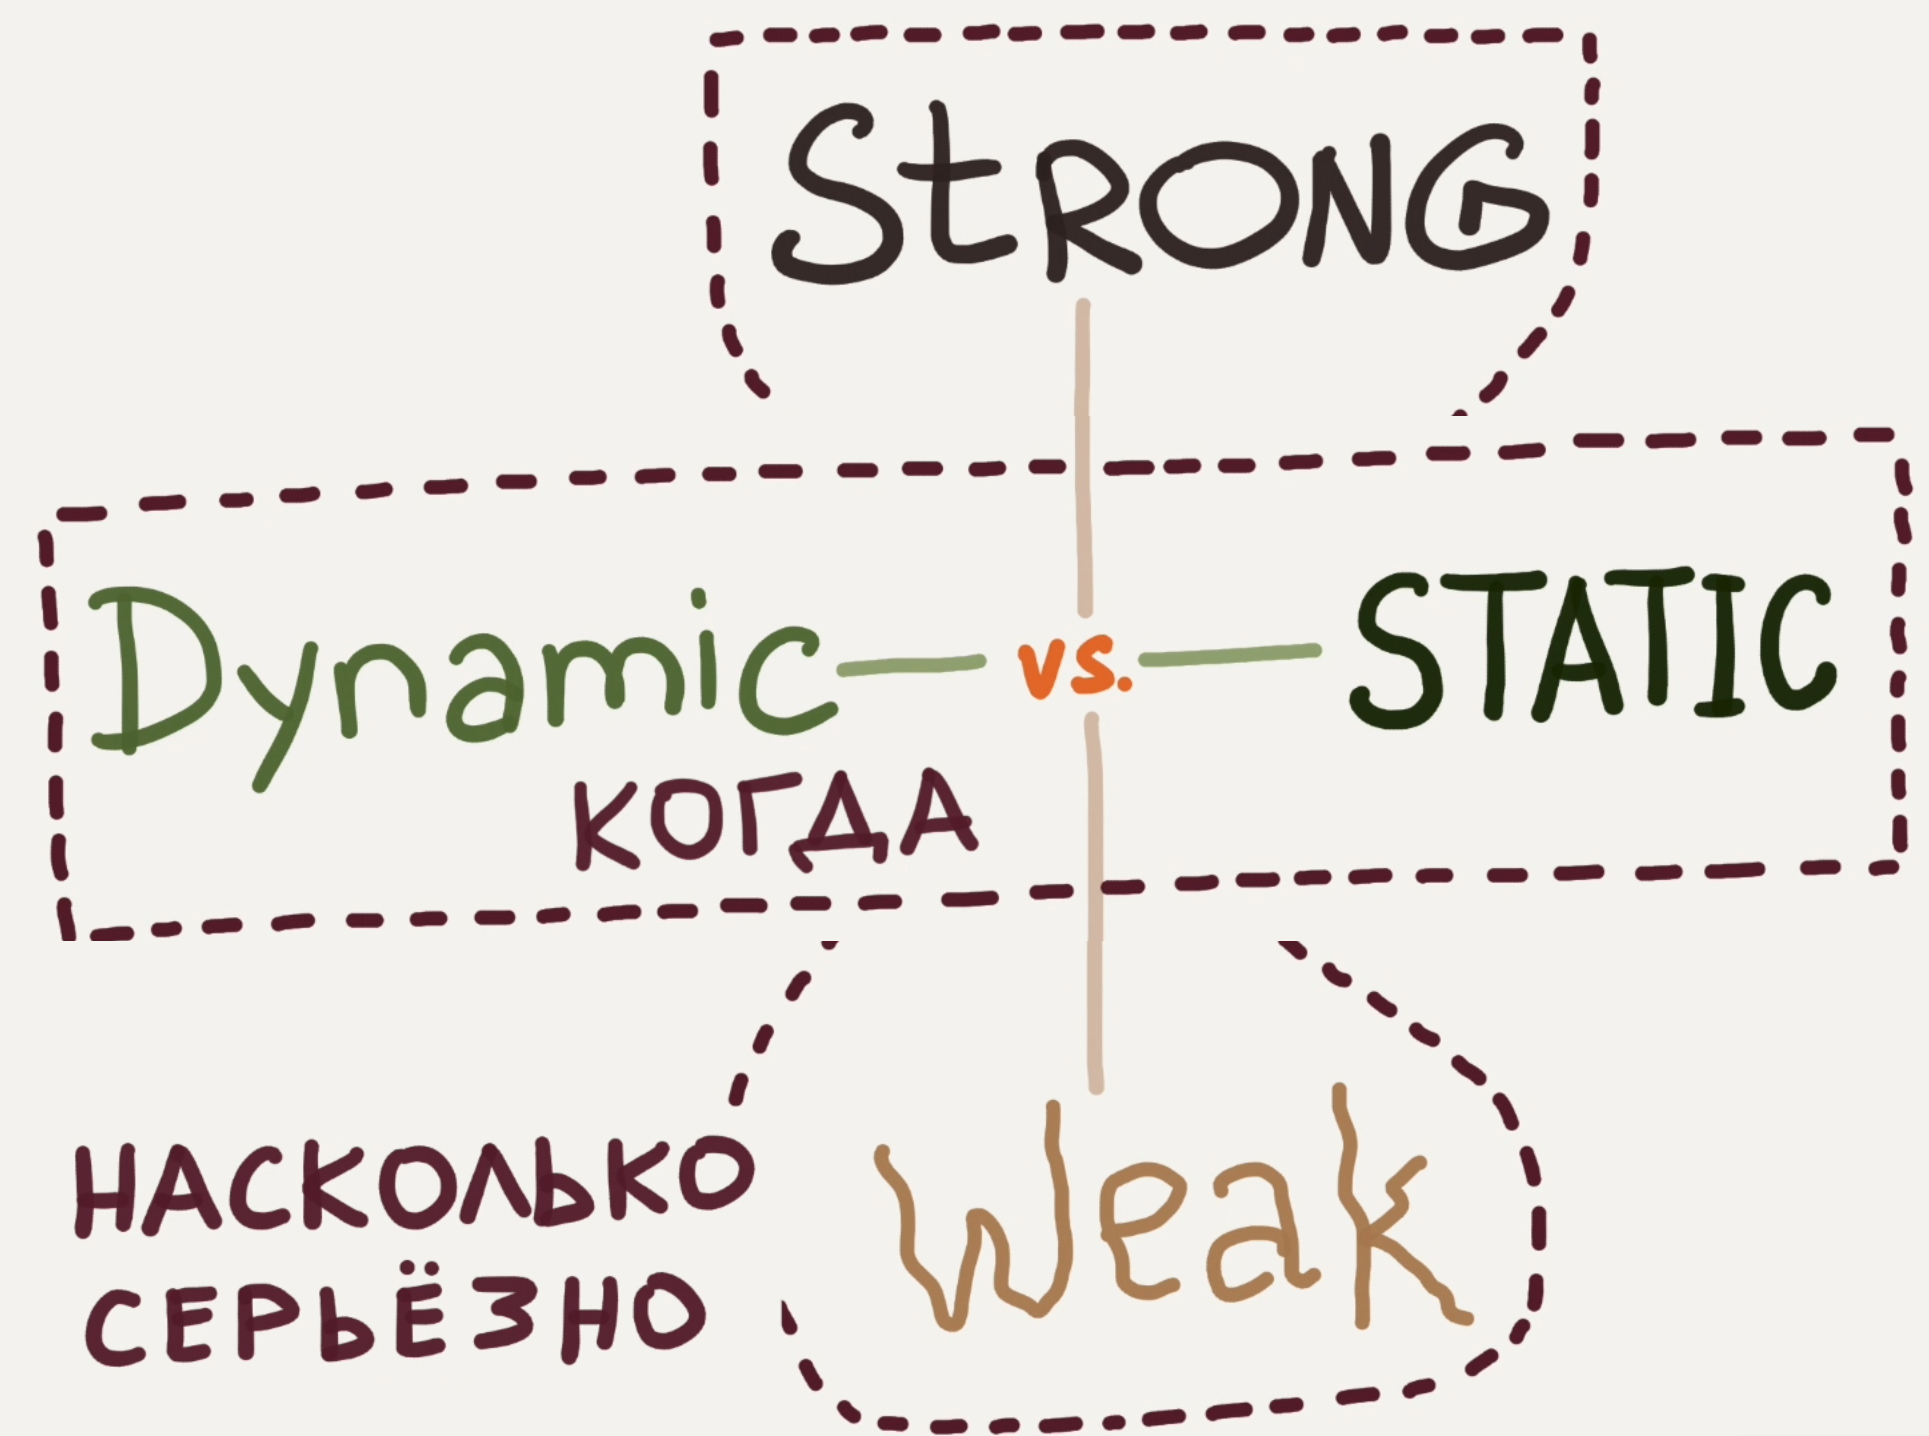 StRONG
Dynamic vs. STATIC
КОГДА
Weak
НАСКОЛЬКО
СЕРЬЁЗНО